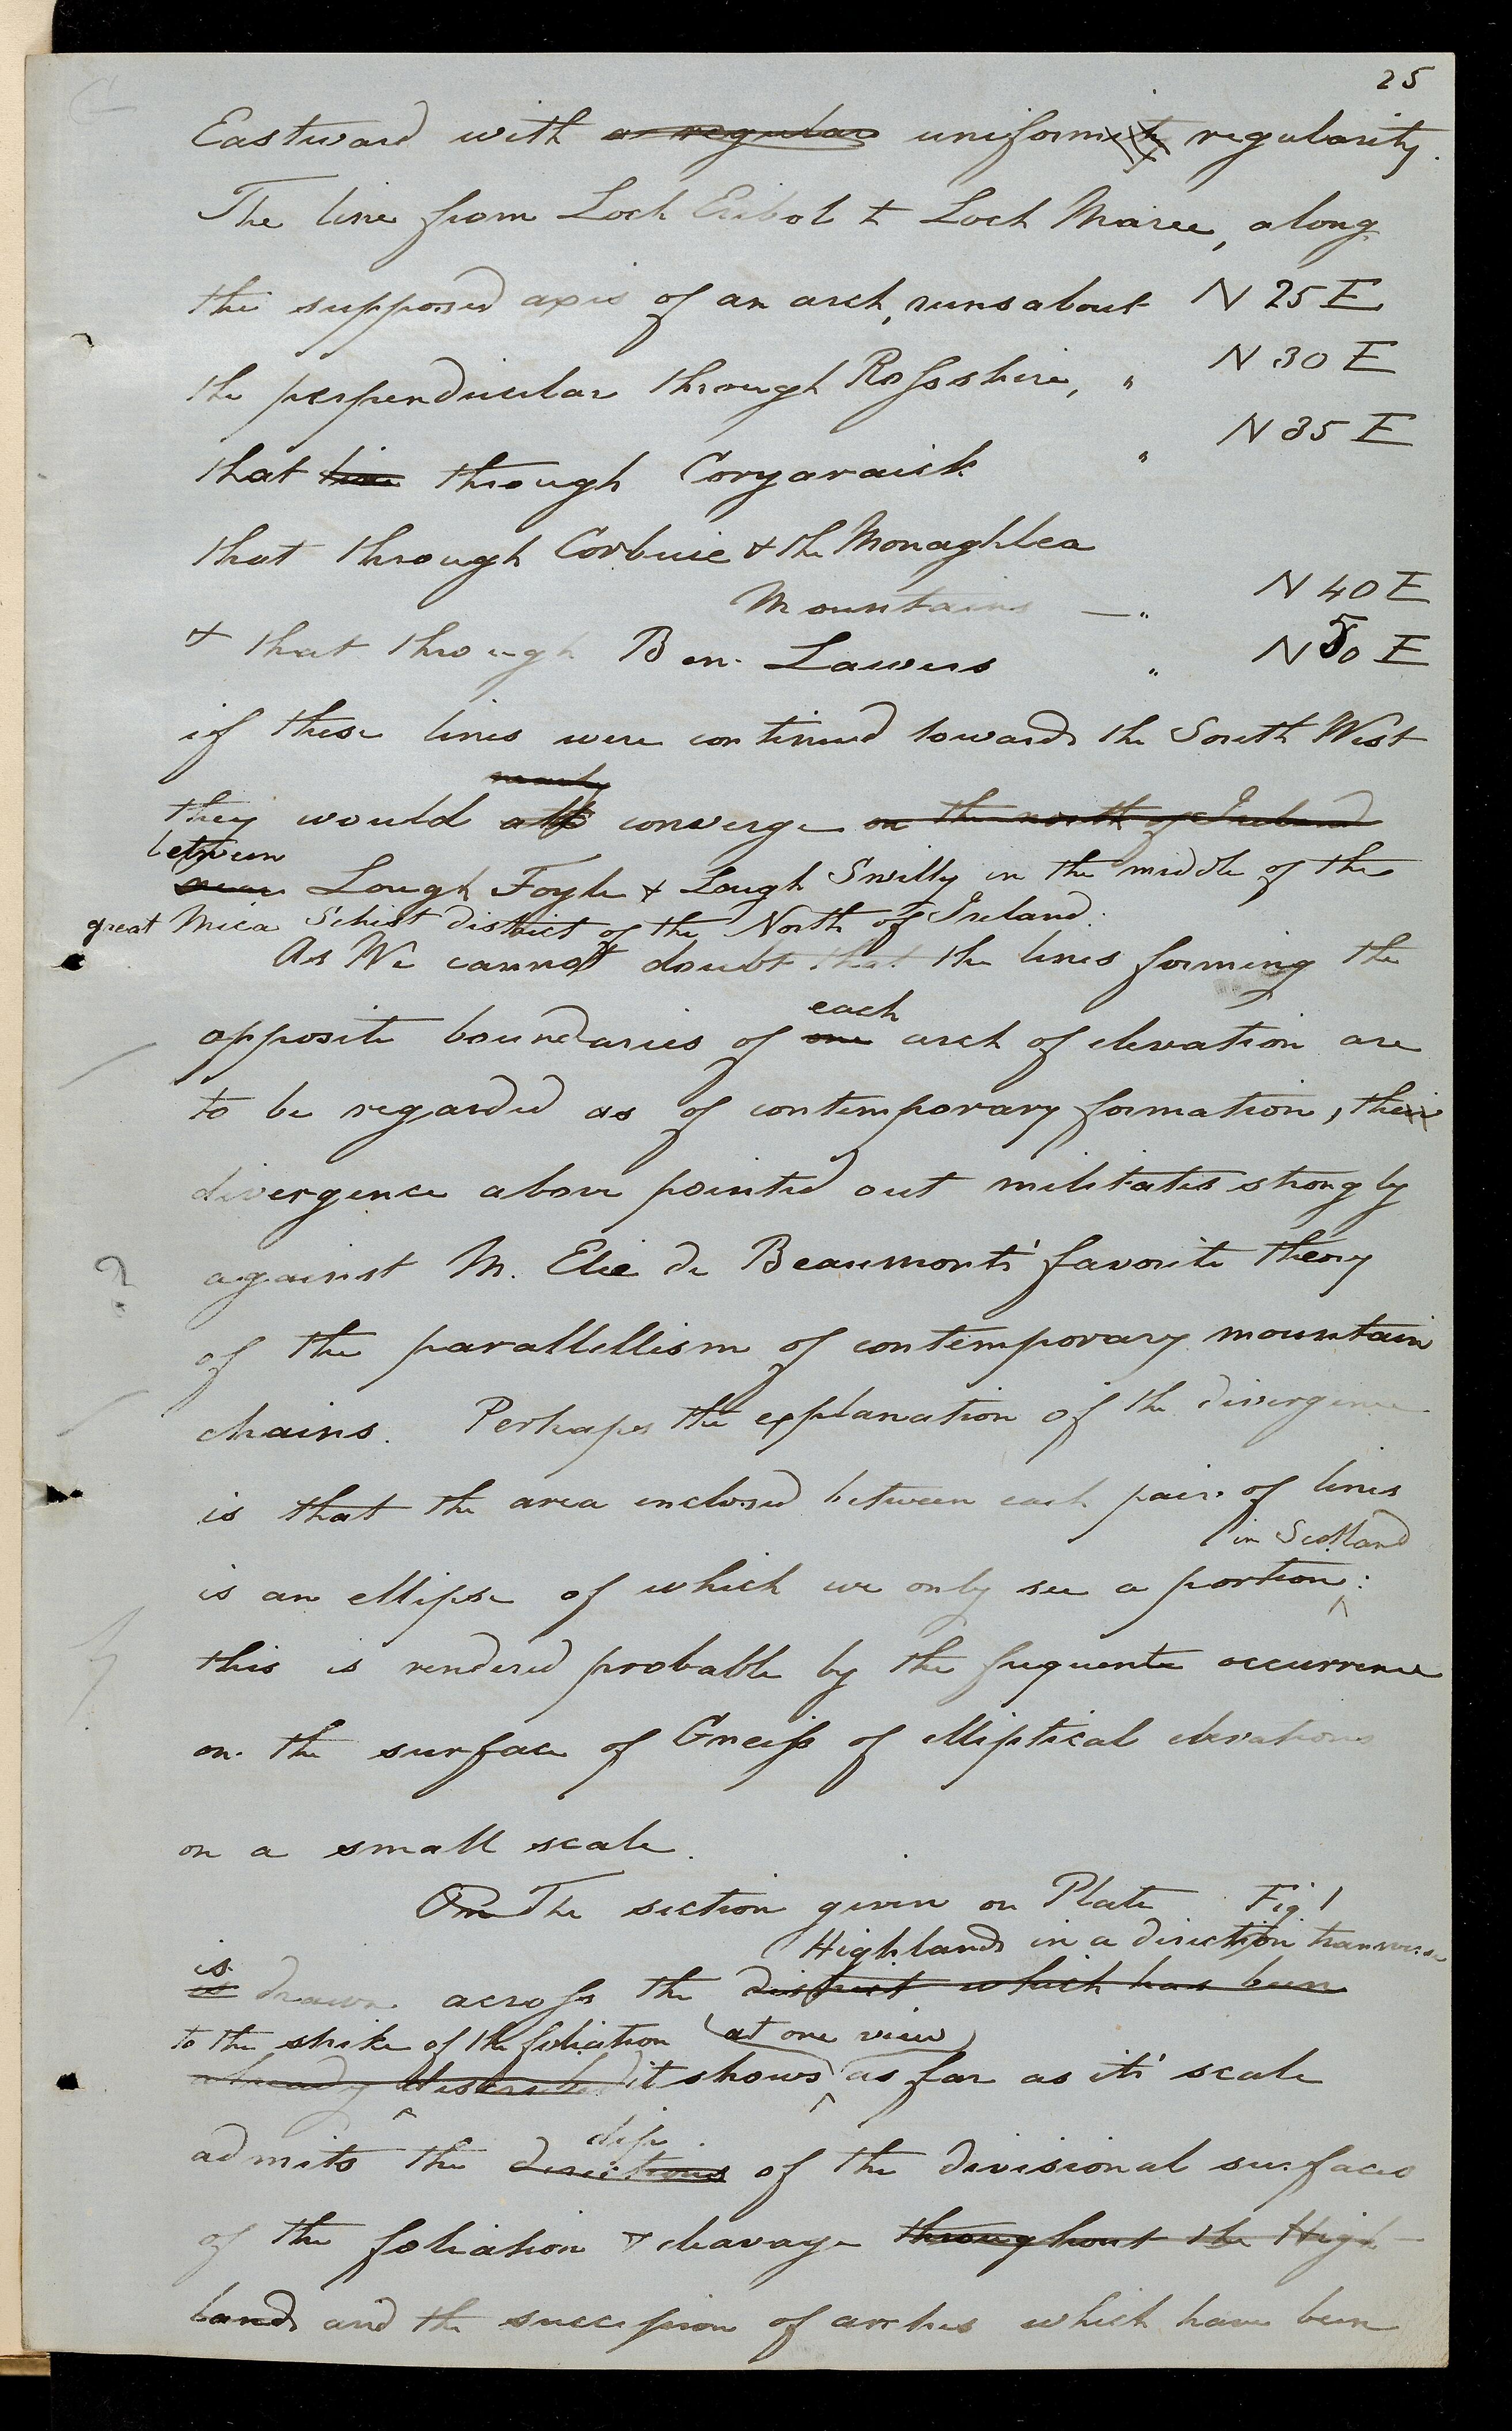 25
Eastward with a regular uniformity regularity.
The line from Loch Eribol to Loch Maree, along
the supposed axis of an arch, runs about N 25 E
the perpendicular through Rossshire, " N 30 E
that line through Coryaraick " N 35 E
that through Corbuie & the Monaghlea
Mountains — " N 40 E
& that through Ben Lawers " N 50 E
if these lines were continued towards the South West
nearly
they would all converge on the north of Ireland
between
near Lough Foyle & Lough Swilly in the middle of the
great Mica Schist district of the North of Ireland.
As We cannot doubt that the lines forming the
each
opposite boundaries of one arch of elevation are
to be regarded as of contemporary formation, their
divergence above pointed out militates strongly
against M. Elie de Beaumont's favorite theory
?
of the parallellism of contemporary mountain
chains. Perhaps the explanation of the divergence
is that the area enclosed between each pair of lines
in Scotland
is an ellipse of which we only see a portion:
this is rendered probable by the frequente occurrence
on the surface of Gneiss of elliptical elevations
on a small scale.
On The section given on Plate Fig 1
Highlands in a direction transverse
is
is drawn across the district which has been
to the strike of the foliation at one view
already described it shows as far as it's scale
dip
admits the directions of the divisional surfaces
of the foliation & cleavage throughout the High-
lands and the succession of arches which have been